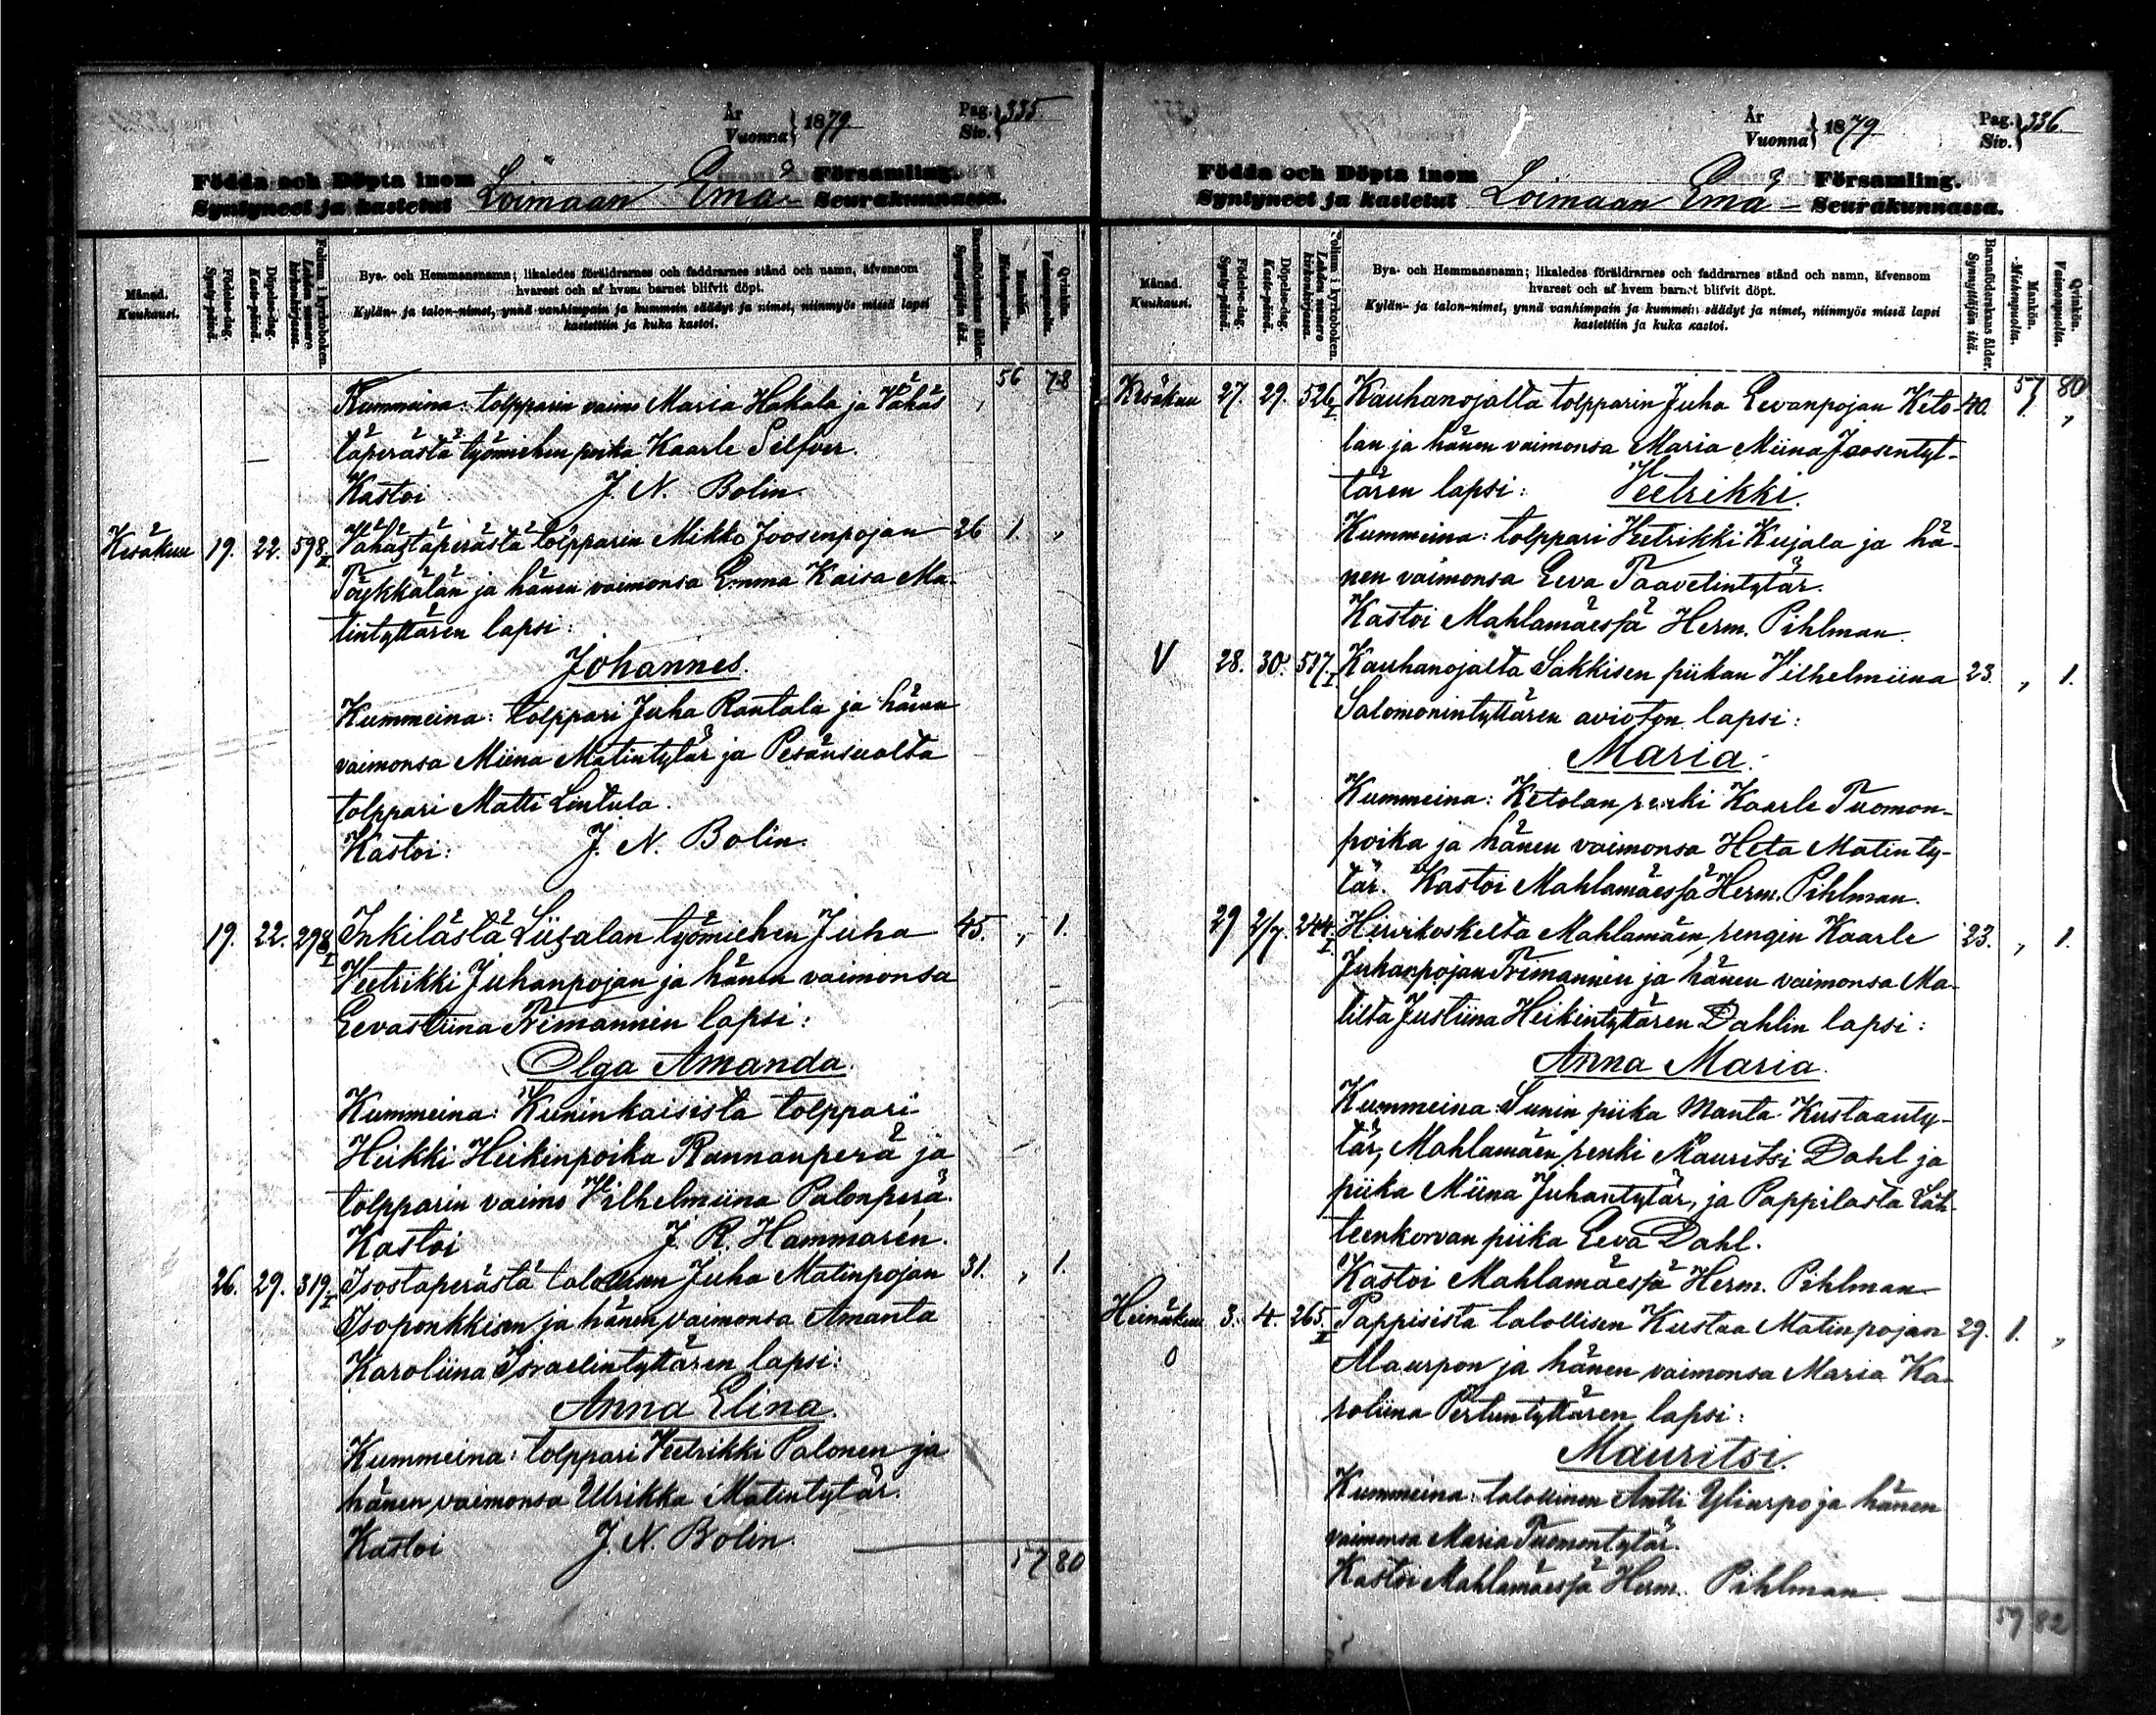 År
Vuonna } 1879
Pag.
Siv. } 335.
Födda och Döpta inom Loimaan Emä- Församling.
Syntyneet ja kastetut Seurakunnassa.
Månad.
Kuukausi.
Födelse-dag.
Synty-päivä.
Döpelse-dag.
Kaste-päivä.
Folium i kyrkoboken.
Lehden numero kirkonkirjassa.
Bys- och Hemmansnamn; likaledes föräldrarnes och faddrarnes stånd och namn, äfvensom
hvarest och af hvem barnet blifvit döpt.
Kylän- ja talon-nimet, ynnä vanhimpain ja kummein säädyt ja nimet, niinmyös missä lapsi
kastettiin ja kuka kastoi.
Barnaföderskans ålder.
Synnyttäjän ikä.
Mankön.
Miehenpuolta.
Qvinkön.
Vaimonpuolta.
56 78
Kummeina: tolpparin vaimo Maria Hakala ja Vähäs
täperästä työmiehen poika Kaarle Selfver.
Kastoi J. N. Bolin.
Kesäkuu 19. 22. 598 I Vähästäperästä tolpparin Mikko Joosenpojan 26 1. „
Töykkälän ja hänen vaimonsa Emma Kaisa Ma-
tintyttären lapsi:
Johannes.
Kummeina: tolppari Juha Rantala ja hänen
vaimonsa Miina Matintytär ja Pesänsuolta
tolppari Matti Lintula.
Kastoi: J. N. Bolin.
19. 22. 298 I Inkilästä Liisalan työmiehen Juha 45. „ 1.
Veetrikki Juhanpojan ja hänen vaimonsa
Eevastiina Trimannin lapsi:
Olga Amanda.
Kummeina: Kuninkaisista tolppari
Heikki Heikinpoika Rannanperä ja
tolpparin vaimo Vilhelmiina Palonperä.
Kastoi J. R. Hammarén.
26. 29. 319 I Isostaperästä talollisen Juha Matinpojan 31. „ 1.
Isoponkkisen ja hänen vaimonsa Amanta
Karoliina Israelintyttären lapsi:
Anna Elina.
Kummeina: tolppari Veetrikki Palonen ja
hänen vaimonsa Ulrikka Matintytär.
Kastoi J. N. Bolin.
57 80
År
Vuonna } 1879
Pag.
Siv. } 336.
Födda och Döpta inom Loimaan Emä- Församling.
Syntyneet ja kastetut Seurakunnassa.
Månad.
Kuukausi.
Födelse-dag.
Synty-päivä.
Döpelse-dag.
Kaste-päivä.
Folium i kyrkoboken.
Lehden numero kirkonkirjassa.
Bys- och Hemmansnamn; likaledes föräldrarnes och faddrarnes stånd och namn, äfvensom
hvarest och af hvem barnet blifvit döpt.
Kylän- ja talon-nimet, ynnä vanhimpain ja kummein säädyt ja nimet, niinmyös missä lapsi
kastettiin ja kuka kastoi.
Barnaföderskans ålder.
Synnyttäjän ikä.
Mankön.
Miehenpuolta.
Qvinkön.
Vaimonpuolta.
57 80
Kesäkuu 27. 29. 526 I Kauhanojalta tolpparin Juha Eevanpojan Keto- 40. 1. „
lan ja hänen vaimonsa Maria Miina Joosentyt-
tären lapsi: Veetrikki.
Kummeina: tolppari Veetrikki Kujala ja hä-
nen vaimonsa Eeva Taavetintytär.
Kastoi Mahlamäessä Herm. Pihlman.
V 28. 30. 517. I Kauhanojalta Sakkisen piikan Vilhelmiina 23. „ 1.
Salomonintyttären avioton lapsi:
Maria.
Kummeina: Ketolan renki Kaarle Tuomon-
poika ja hänen vaimonsa Heta Matinty-
tär. Kastoi Mahlamäessä Herm. Pihlman.
29 2/7. 244. I Hirvikoskelta Mahlamäen rengin Kaarle 23. „ 1.
Juhanpojan Trimannin ja hänen vaimonsa Ma-
tilta Justiina Heikintyttären Dahlin lapsi:
Anna Maria.
Kummeina: Sunin piika Manta Kustaanty-
tär, Mahlamäen renki Mauritsi Dahl ja
piika Miina Juhantytär, ja Pappilasta Läh-
teenkorvan piika Eeva Dahl.
Kastoi Mahlamäessä Herm. Pihlman.
Heinäkuu 3. 4. 265. II Pappisista talollisen Kustaa Matinpojan 29. 1. „
0 Alaurpon ja hänen vaimonsa Maria Ka-
roliina Pertuntyttären lapsi:
Mauritsi.
Kummeina: talollinen Antti Yliurpo ja hänen
vaimonsa Maria Tuomontytär.
Kastoi Mahlamäessä Herm. Pihlman.
59 82